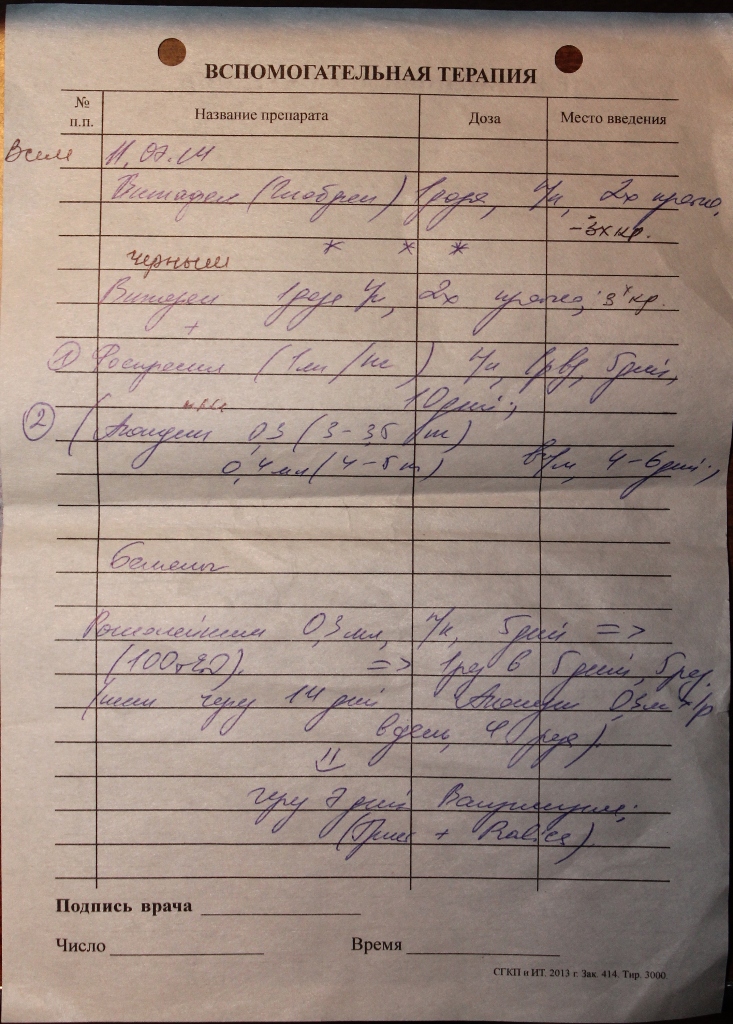 ВСПОМОГАТЕЛЬНАЯ ТЕРАПИЯ
№ п.п. Название препарата Доза Место введения
Всем 11.07.14
(Глобфел) 1 доза, п/к, 2х кратно,
-3х кр.
* * *
черным
1 доза п/к, 2х кратно, 3х кр.
+
① (1мл/кг) п/к, 1р в д, 5 дней,
10 дней;
② ( 0,3 (3-3,5 кг)
0,4 мл (4-5 кг) в/м, 4-6 дней;
Белым
Ронколейкин 0,3 мл, п/к, 5 дней =>
(100т ЕД). => 1 раз в 5 дней, 5 раз.
через 14 дней 0,3 мл 1 р
в день, 4 раза).
через 7 дней Вакцинация;
(Трик + Rabies).
Подпись врача
Число Время
СГКП и ИТ. 2013 г. Зак. 414. Тир. 3000.